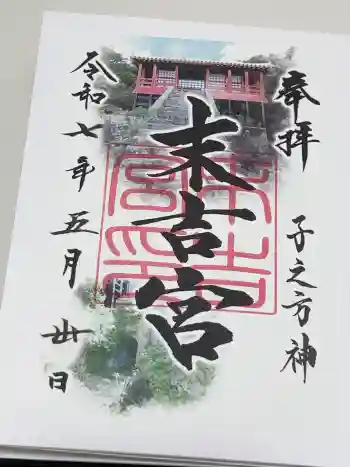 奉拝
子之方神
末吉宮
令和七年五月丗日
末吉宮印